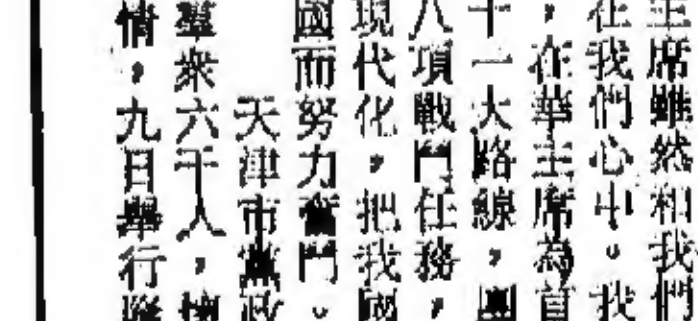 主席雖然和我們
在我們心中。我
，在華主席為首
十一大路線，團
八項戰鬥任務，
現代化，把我國
國而努力奮鬥。
天津市黨政
羣衆六千人，懷
情，九日舉行隆